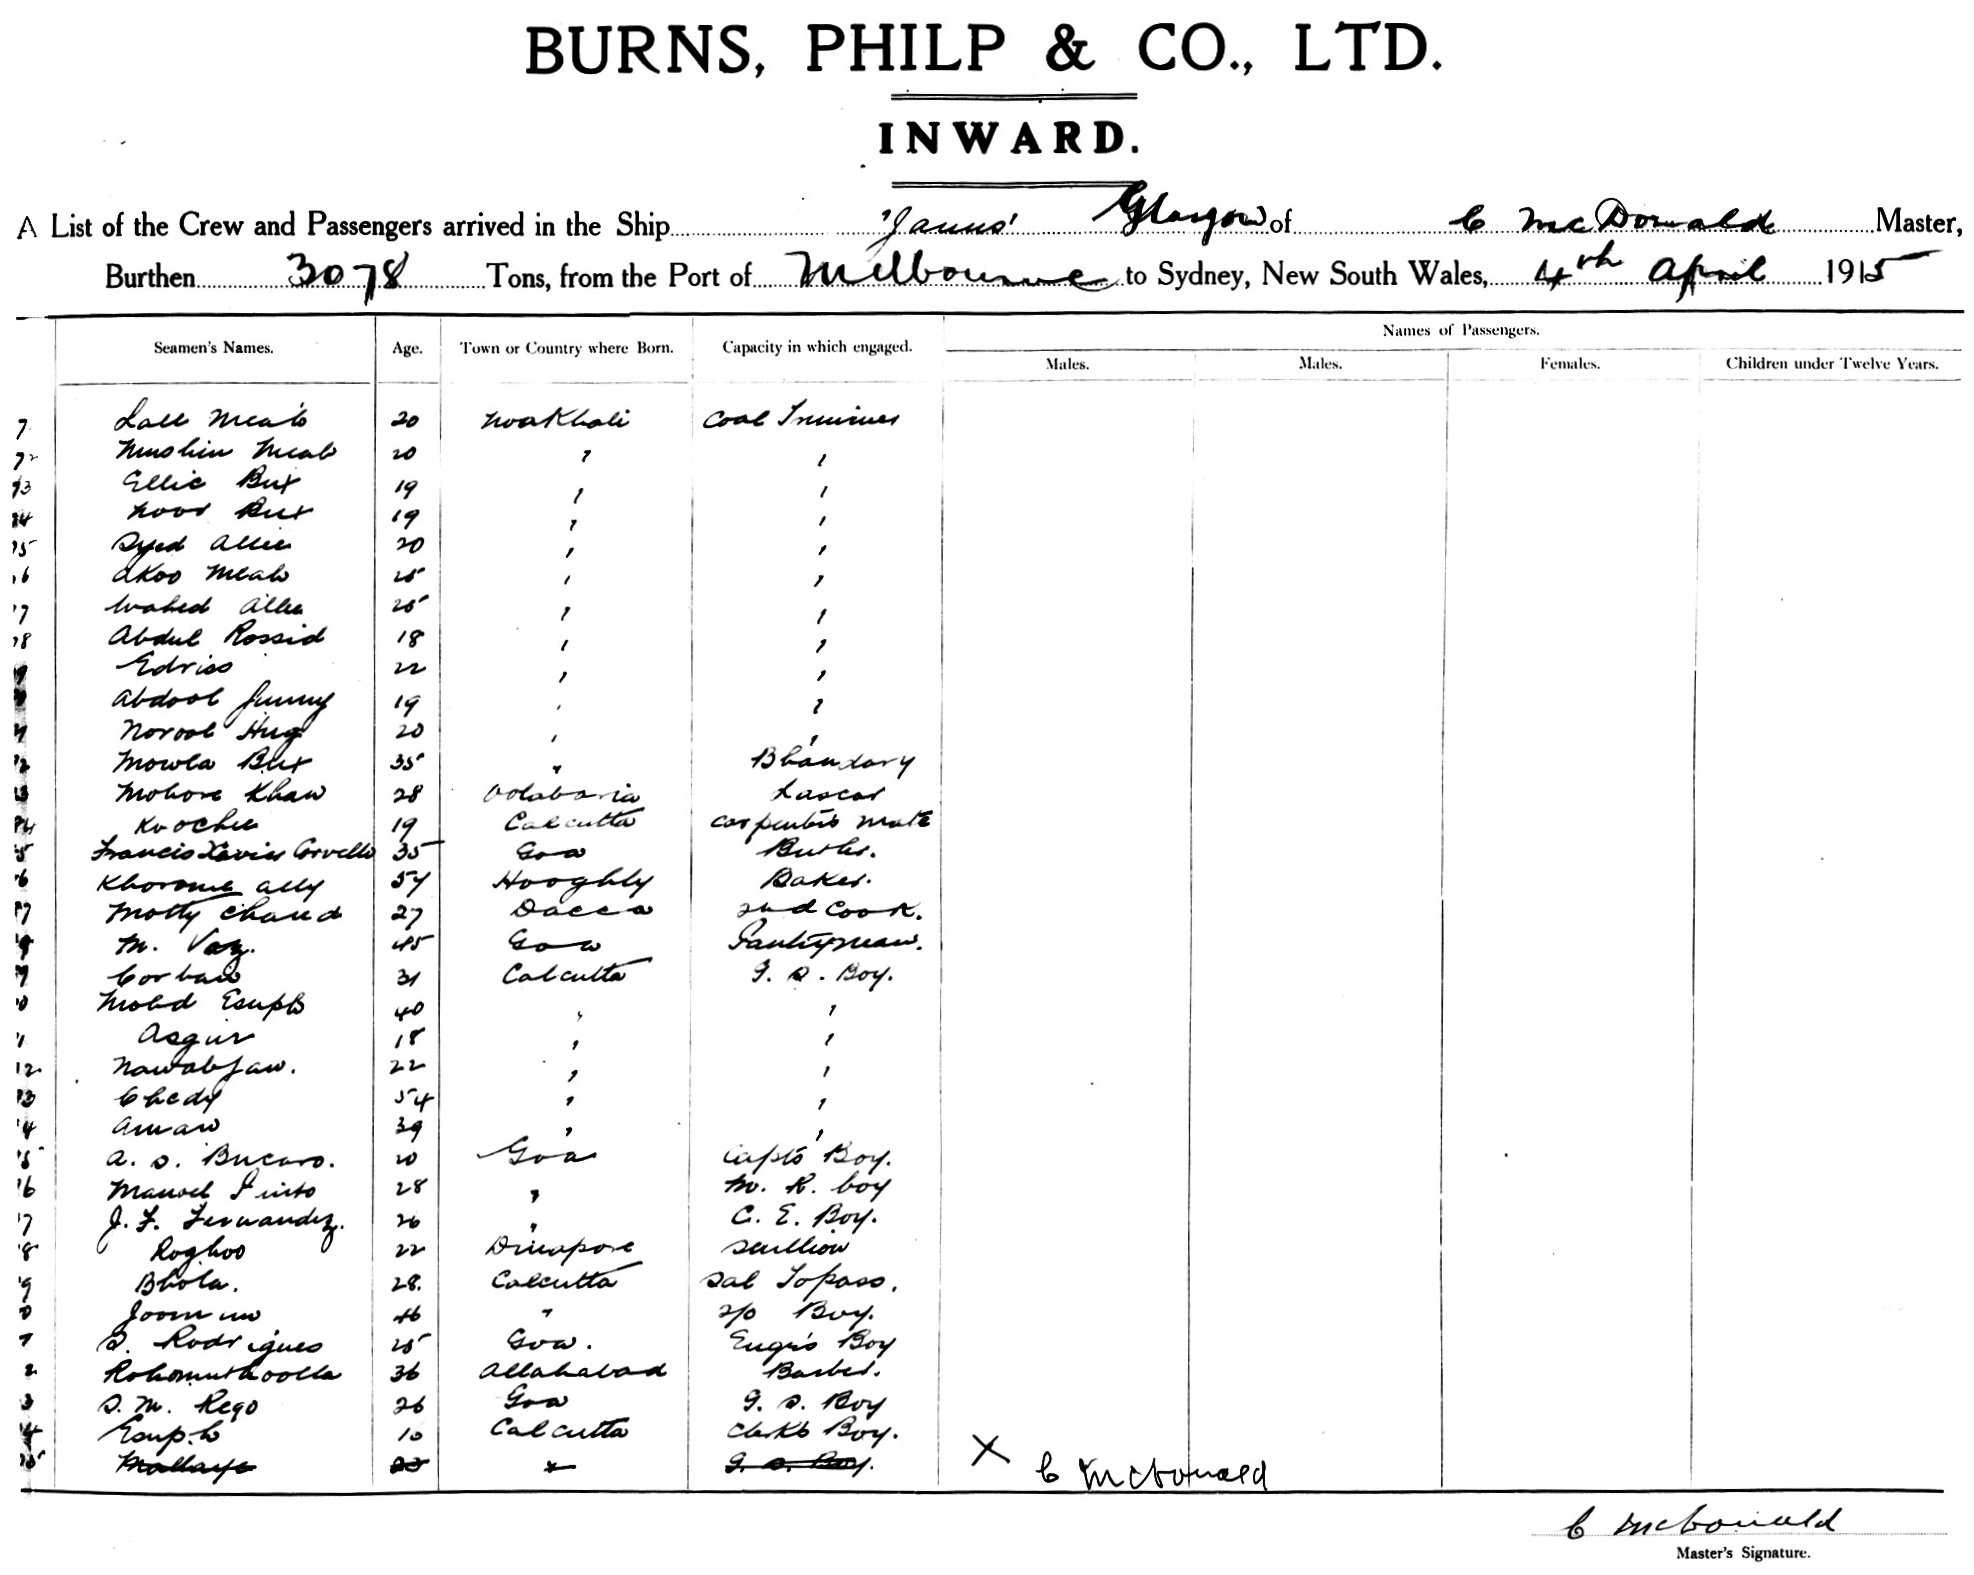 BURNS, PHILP & CO., LTD.
INWARD.
A List of the Crew and Passengers arrived in the Ship 'Janus' Glasgow of C McDonald Master,
Burthen 3078 Tons, from the Port of Melbourne to Sydney, New South Wales, 4th April 1915
Names of Passengers.
Seamen's Names. Age. Town or Country where Born. Capacity in which engaged. Males. Males. Females. Children under Twelve Years.
Lall Meah 20 Noakhali Coal Trimmer
Mushin Meah 20 " "
Ellie Bux 19 " "
Noor Bux 19 " "
Syed Allie 20 " "
Akoo Meah 25 " "
Wahed Allie 25 " "
Abdul Rossid 18 " "
Edriss 22 " "
Abdool Gunny 19 " "
Norool Hug 20 " "
Mowla Bux 35 " Bhandary
Mohore Khan 28 Oolabaria Lascar
Koochee 19 Calcutta Carpenter's Mate
Francis Xavier Corvello 35 Goa Butler.
Khorome Ally 54 Hooghly Baker.
Motty Chand 27 Dacca 2nd Cook.
M. Vaz. 45 Goa Pantryman.
Corban 31 Calcutta G. S. Boy.
Mohd Esuph 40 " "
Asgur 18 " "
Nawabjan. 22 " "
Chedy 54 " "
Aman 39 " "
A. S. Bucaro. 20 Goa Capt's Boy.
Manoel Pinto 28 " M. R. boy
J. F. Fernandez. 26 " C. E. Boy.
Roghoo 22 Dinapore Scullion
Bhola. 28. Calcutta Sal Topass.
Joomun 46 " 2/0 Boy.
S. Rodrigues 25 Goa. Engr's Boy
Rohomuthoolla 36 Allahabad Barber.
S. M. Rego 26 Goa G. S. Boy
Esuph 10 Calcutta Clerk's Boy.
" G. S. Boy. X C McDonald
C McDonald
Master's Signature.